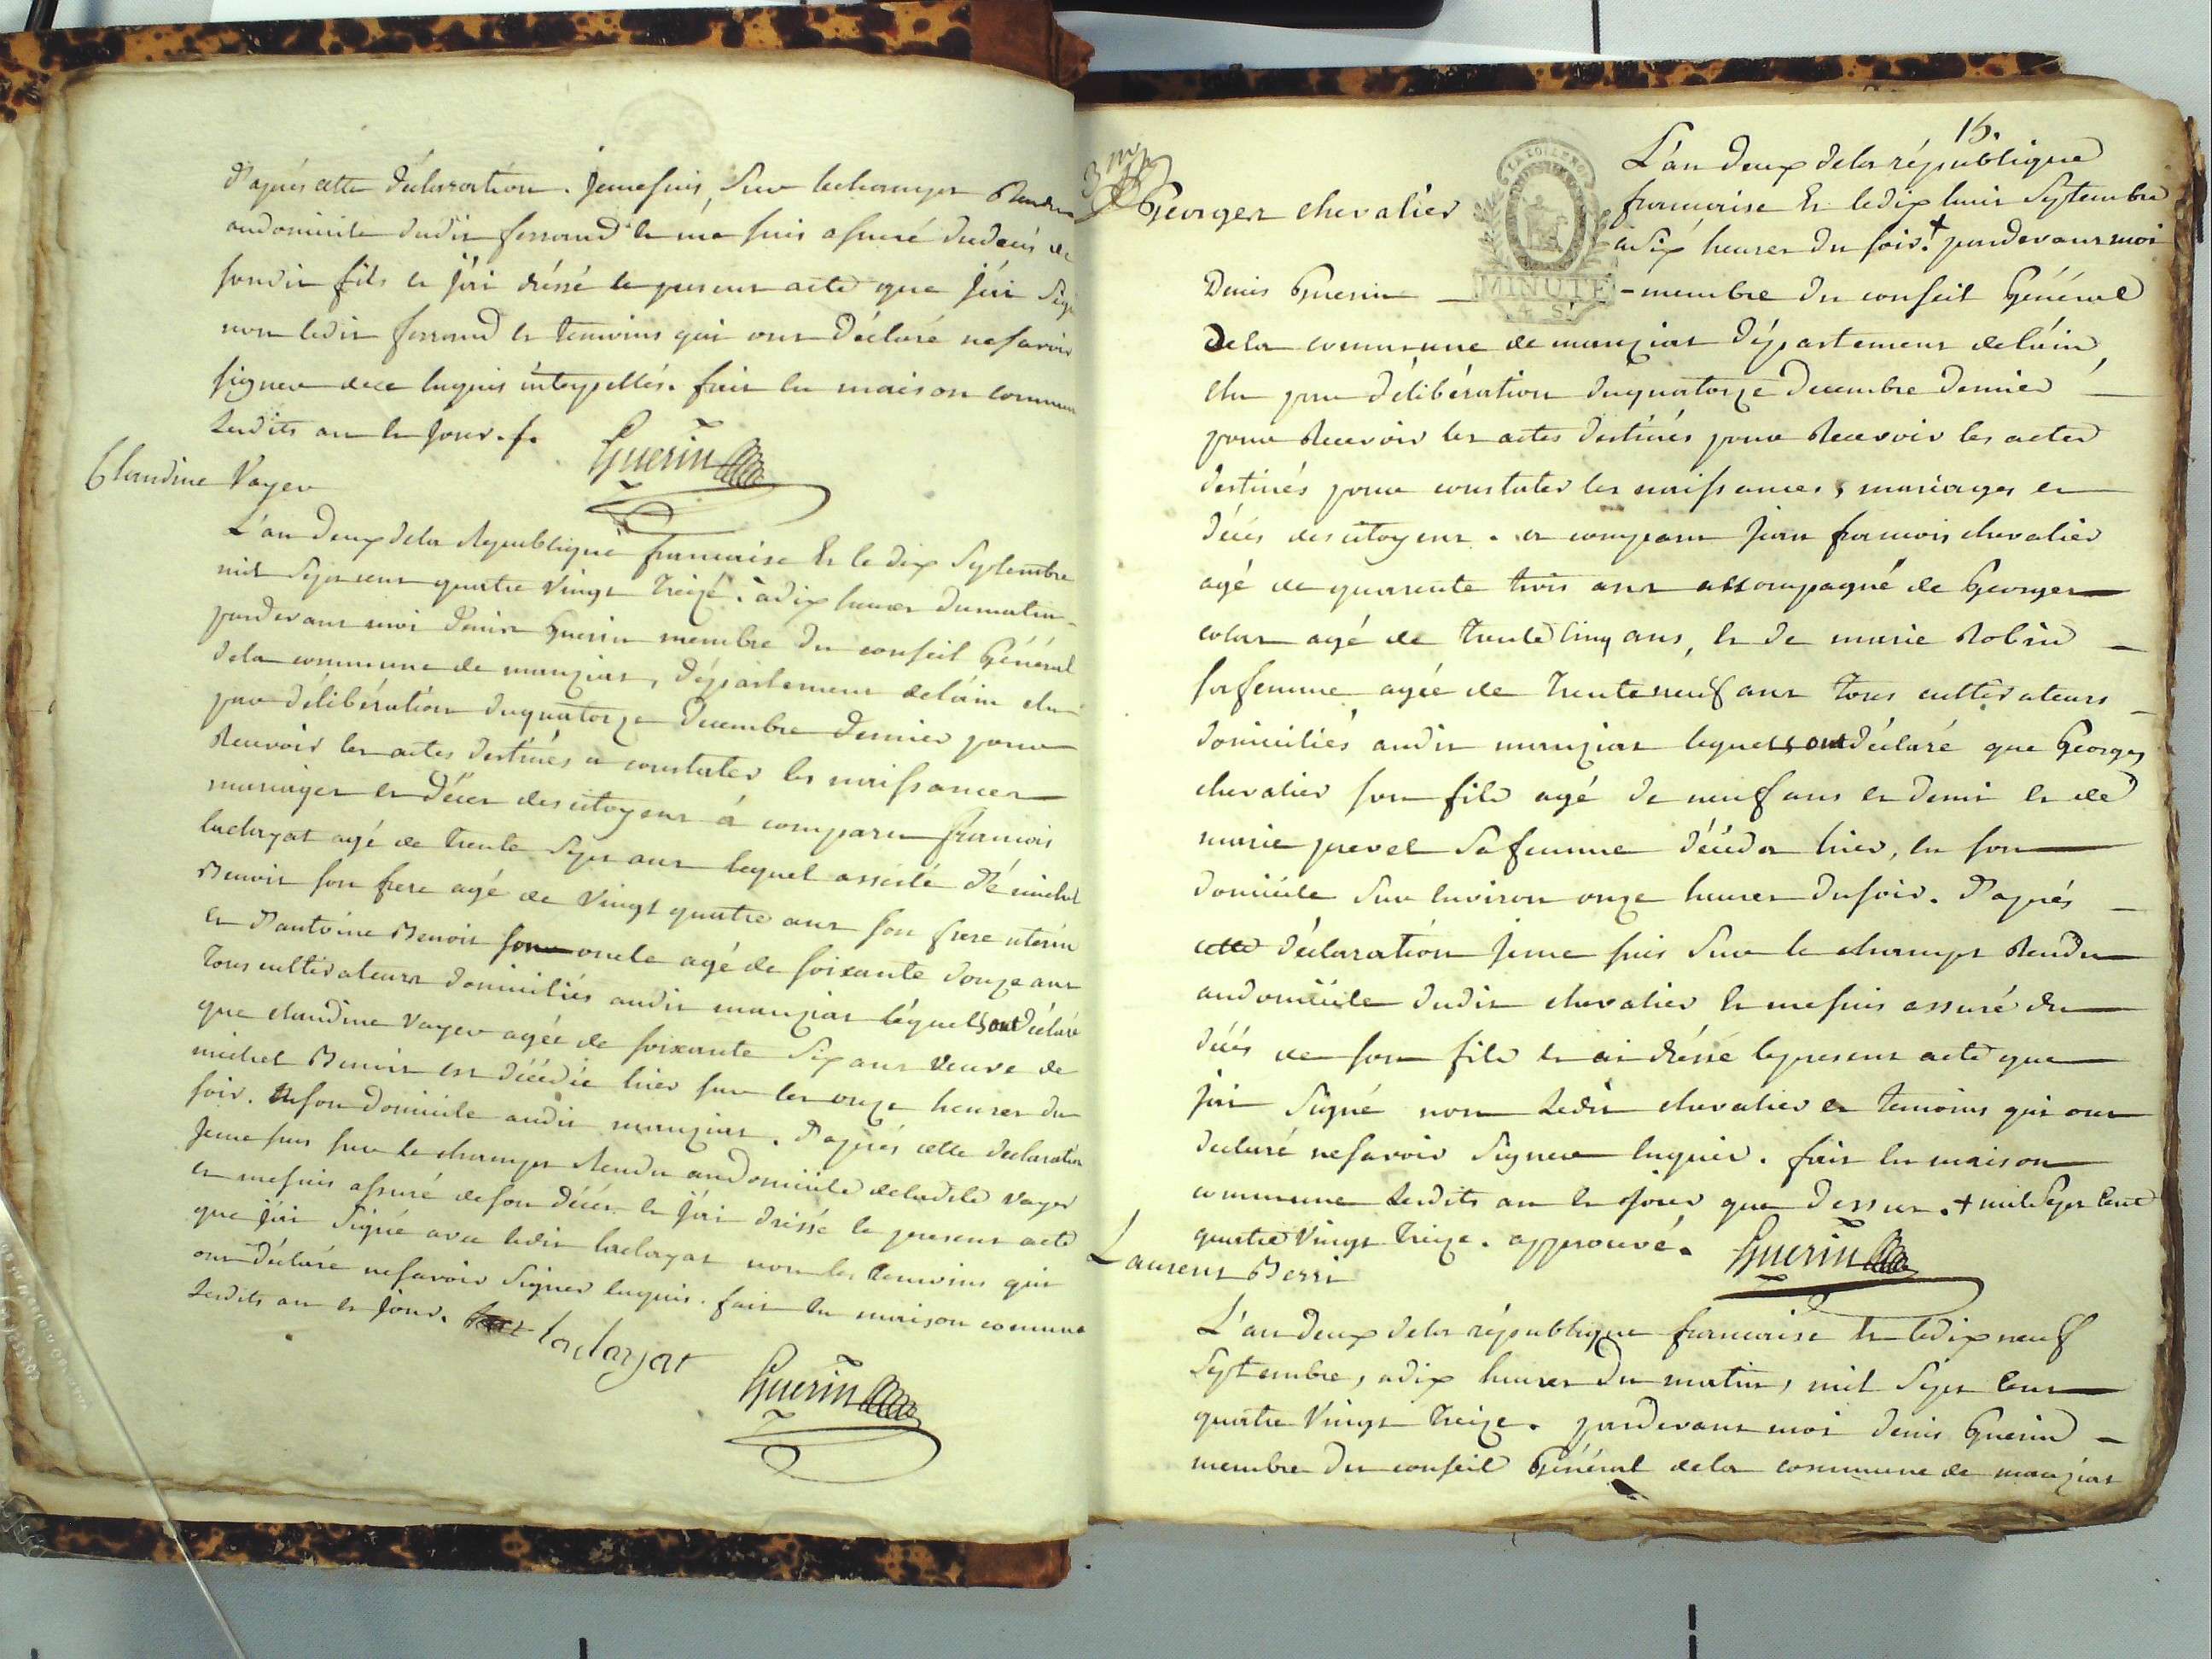 d'aprés cette déclaration. Jemesuis sur lechamps Rendu
audomicile dudit ferrand et me suis assuré dudecés de
sondit fils et j'ai dréssé le present acte que j'ai Signé
non ledit ferrand et temoins qui ont déclaré nesavoir
signer dece enquis interpellés. fait en maison commune
lesdits an et jour. f.
Guerin
Claudine Vayer
L'an deux dela Republique francaise Et le dix Septembre
mil Sept cent quatre vingt treize. à dix heures dumatin
pardevant moi denis Guerin membre du conseil Général
dela commune de manziat, département de l'ain elu
par délibération duquatorze decembre dernier pour
Recevoir les actes destinés a constater les naissances
mariages et décés des citoyens à comparu francois
ladayat agé de trente Sept ans lequel assisté dé michel
Benoit son frere agé de vingt quatre ans son frere uterin
et d'antoine Benoit oncle agé de soixante douze ans
tous cultivateurs domiciliés audit manziat léquels ont déclaré
que claudine vayer agée de soixante Six ans veuve de
michel Benoit est décédée hier sur les onze heures du
soir. En son domicile audit manziat. d'aprés cette declaration
Jeme suis sur le champs Rendu audomicile deladite vayer
et mesuis assuré deson décés et j'ai dréssé le present acte
que j'ai Signé avec ledit ladayat non les temoins qui
ont déclaré nesavoir Signer enquis. fait en maison commune
lesdits an et jour. ladayat
Guerin
15.
L'an deux dela république
Georges chevalier
francaise Et ledix huit Septembre
à Six heures du soir. + pardevant moi
Denis Guerin - membre du conseil Général
MINUTE
4 S.
Dela commune de manziat Département de l'ain
elu par délibération duquatorze decembre dernier
pour Recevoir les actes destinés pour Recevoir les actes
destinés pour constater les naissances, mariages et
décés des citoyens. est comparu jean francois chevalier
agé de quarente trois ans accompagné de Georges
colas agé de trente cinq ans, et de marie Robin
safemme agée de trenteneuf ans tous cultivateurs
domiciliés audit manziat lequels ont déclaré que Georges
chevalier son fils agé de neuf ans et demi et de
marie prevel Safemme décéda hier, en son
domicile Sur environ onze heures dusoir. d'aprés
cette déclaration jeme suis Sur le champs Rendu
audomicile dudit chevalier et mesuis assuré du
décés de son fils et ai dréssé lepresent acte que
j'ai Signé non Ledit chevalier et temoins qui ont
declaré nesavoir Signer enquis. fait en maison
commune lesdits an et jour que dessus. + mil Sept cent
quatre vingt treize. approuvé. Guerin
Laurent Berri
L'an deux dela république francaise Et ledix neuf
Septembre, à dix heures du matin, mil Sept cent
quatre vingt treize. pardevant moi denis Guerin
membre du conseil Général dela commune de manziat